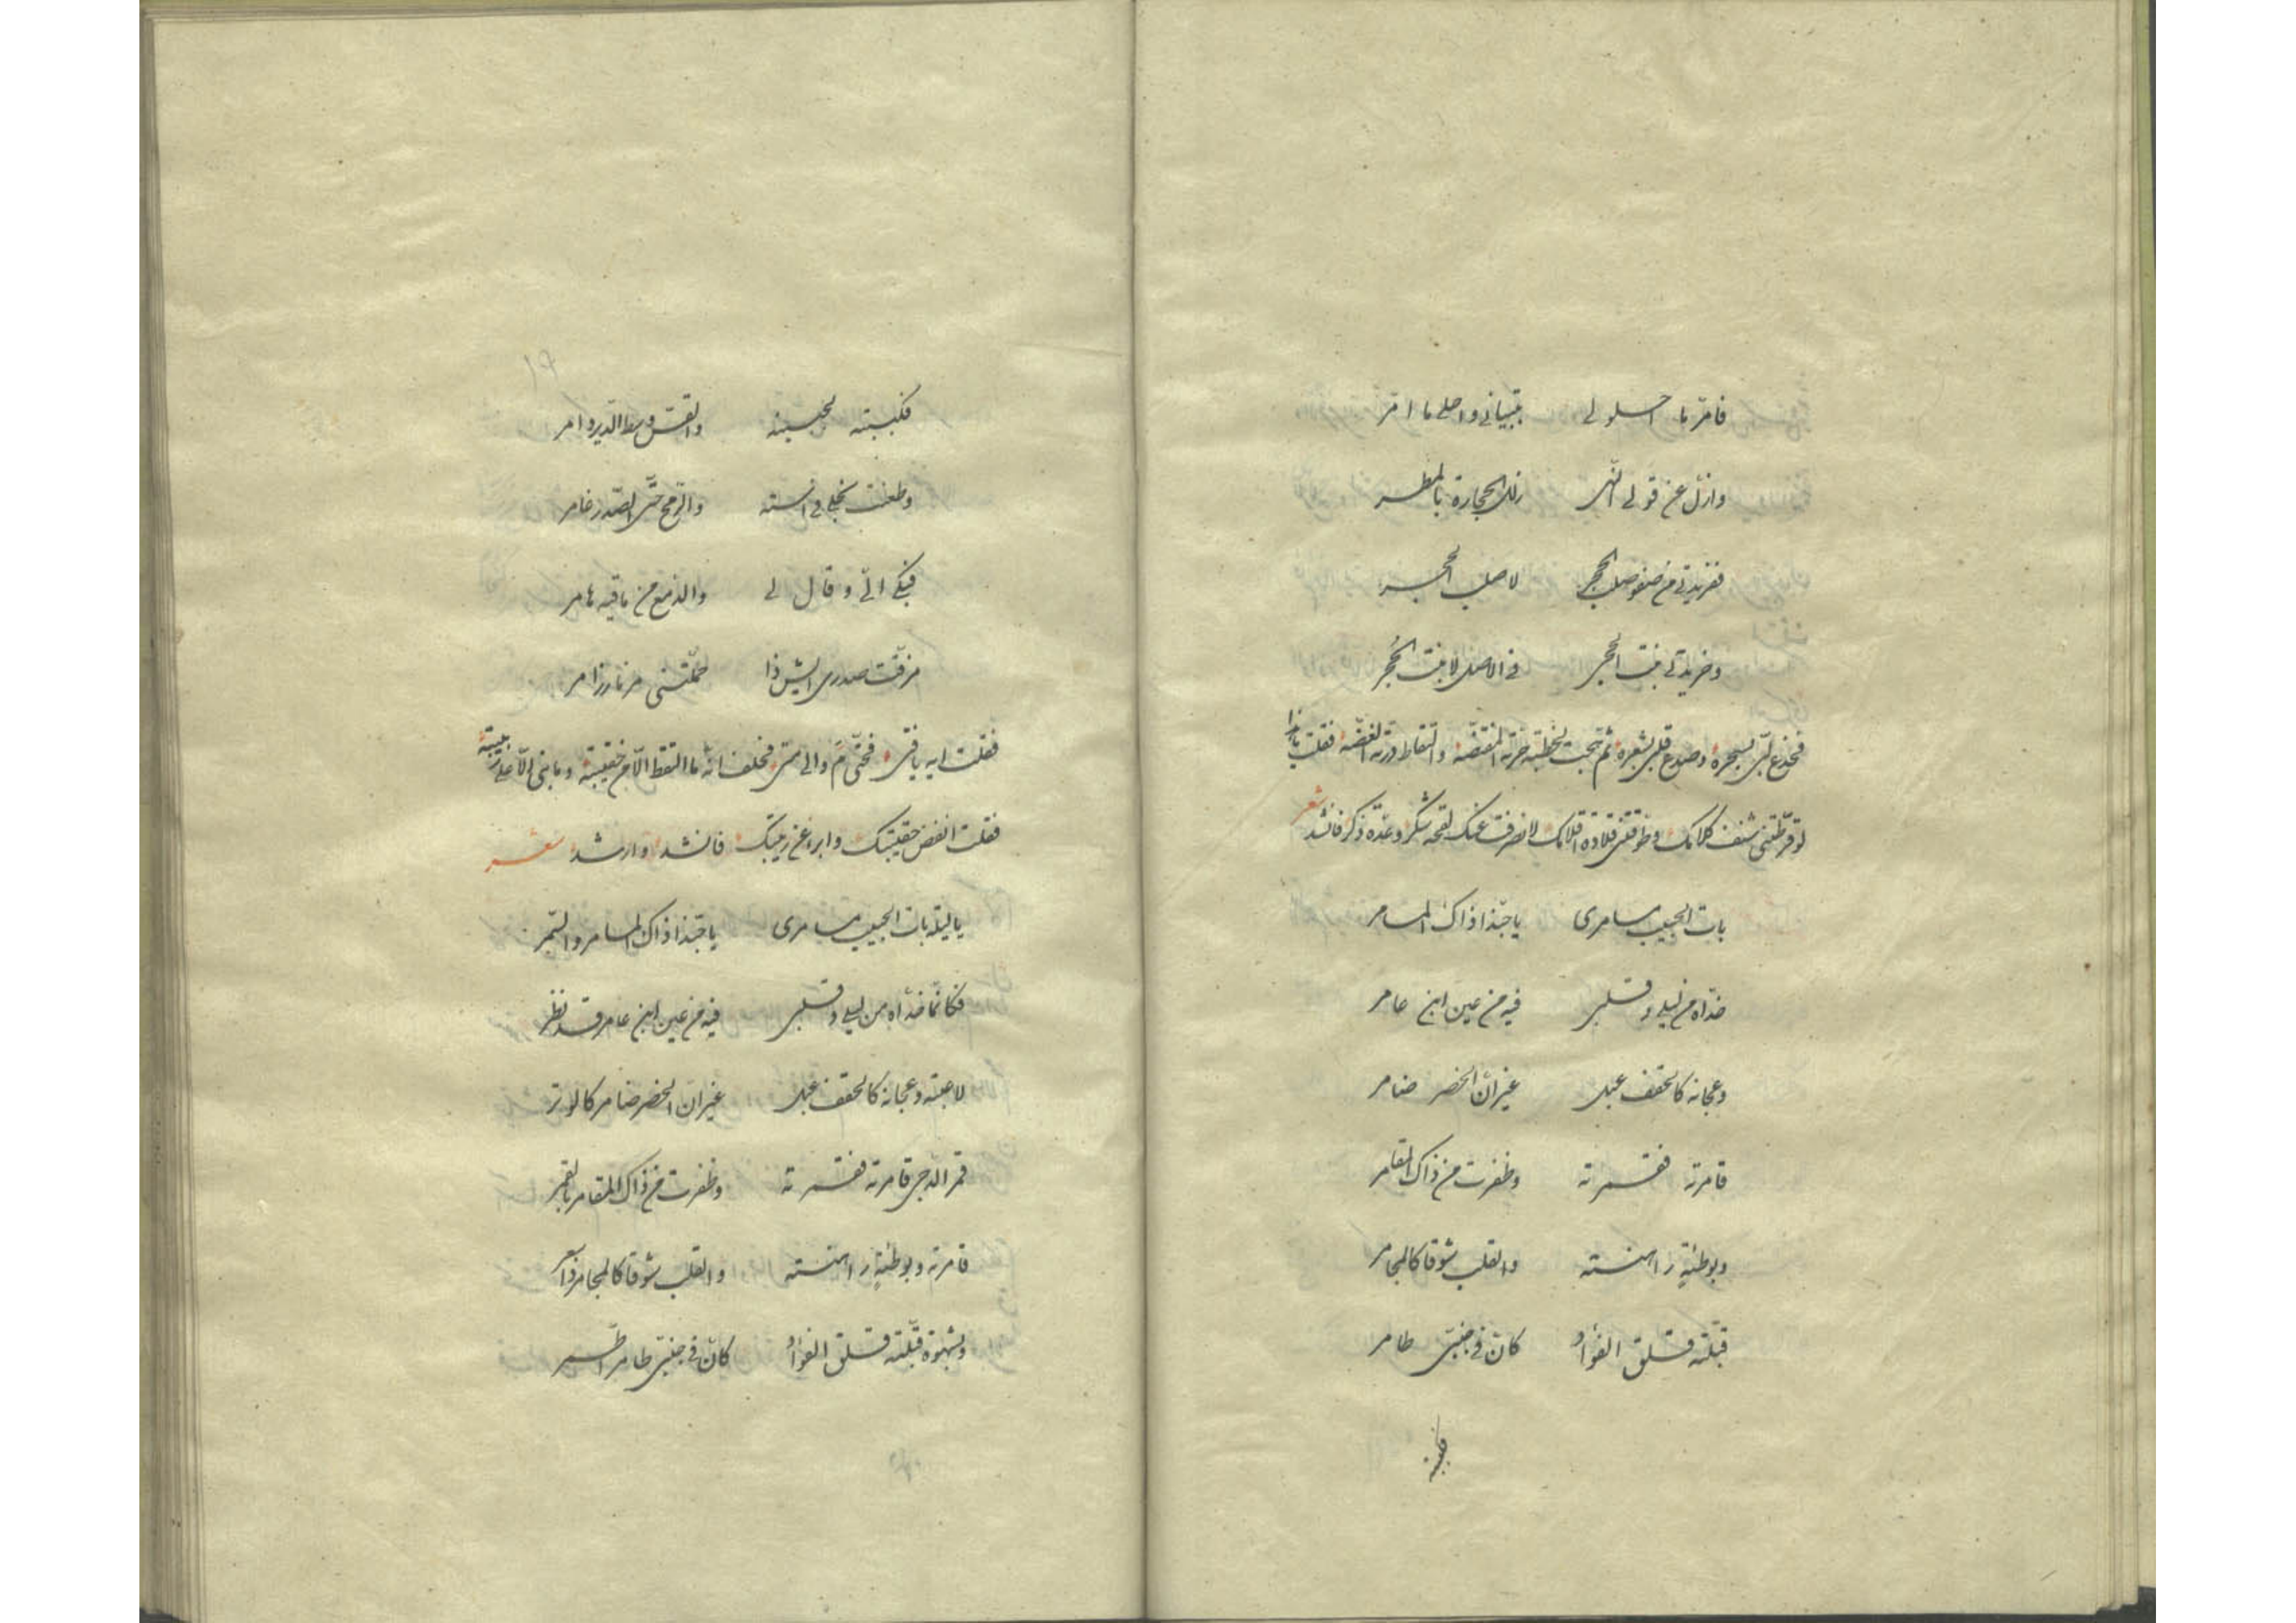 فامرّ ما احلولى بتبيانى واحلى ما امرّ
وازلّ عن قولى النهى زلل الحجارة بالمطر
ففريدتى من صفو صلب الحجر لا صلب الحجر
وخريدتى بنت الحجى فى الاصل لا بنت الحجر
فخدع لبّى بسحره وصدع قلبى بشعره ثم هجت لخطبة المقتضّه والتقاط درته الغضّه فقلت يا هذا
لو قرّطتنى شنف كلامك وطوقتنى قلادة اقلامك لانصرفت عنك لقحة شكر وغدة ذكر فانشد شعر
بات الحبيب مسامرى يا حبّذا ذاك المسامر
خدّاه من ليلى وقلبى فيه من عين ابن عامر
وعجانه كالحقف عبل غير انّ الخصر ضامر
قامرته فقمرته وظفرت من ذاك المقامر
وبوطئةٍ راهنته والقلب شوقا كالمجامر
قبّلته قلق الفؤاد كانّ فى جنبىّ طامر
فكببته
١٧
فكببته لجبينه والقسّ وسط الدير دامر
وطعنت بنجلى فى استه والرمح حتّى الصدر غامر
فبكى الىّ وقال لى والدمع من ماقيه هامر
مزقت صدرى ايش ذا حمّلتنى مزمار زامر
فقلت ايه يا فتى فحتّى مَ والى متى فحلف انه ما التقط الّا من حقيبته وما بنى الّا على زبيبته
فقلت انفض حقيبتك وابرا عن زبيبتك فانشد وارشد شعر
يا ليلة بات الحبيب مسامرى يا حبّذا ذاك المسامر والسّمر
فكانّما خدّاه من ليلى وقلبى فيه من عين ابن عامر قد نظر
لاعبته وعجانه كالحقف عبل غير انّ الخصر ضامر كالوتر
قمر الدجى قامرته فقمرته وظفرت من ذاك المقامر بالقمر
قامرته وبوطئةٍ راهنته والقلب شوقا كالمجامر
وبشهوة قبّلته قلق الفؤاد كانّ فى جنبىّ طامر اطّمر